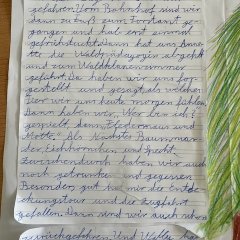 gefahren. Vom Bahnhof sind wir
dann zu Fuß zum Forstamt ge-
gangen und hab erst einmal
gefrühstückt. Dann hat uns
die Waldpädagogin abgeholt
und zum Waldklassenzimmer
geführt. Da haben wir uns vor-
gestellt und gesagt, als welches
Tier wir uns heute morgen fühlen.
Dann haben wir „Wer bin ich?“
gespielt dann „Fledermaus und
Motte“. Als nächstes Baummar-
der Eichhörnchen und Specht.
Zwischendurch haben wir auch
noch getrunken und gegessen
Besonders gut hat mir die Entde-
ckungstour und die Zugfahrt
gefallen. Dann sind wir auch schon
zurückgefahren. Und